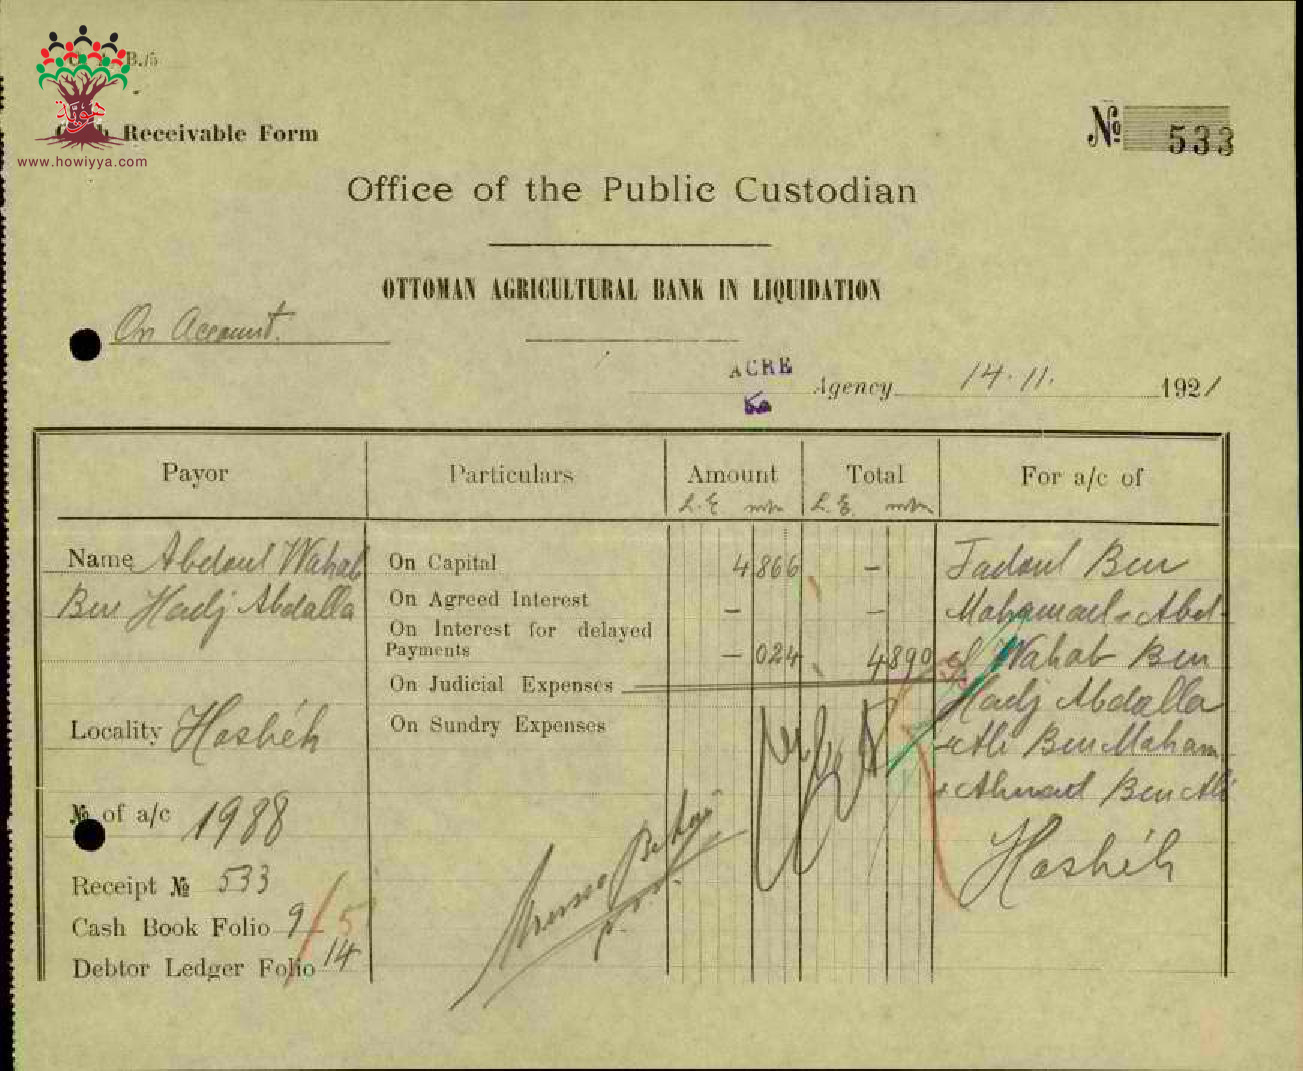 B./5
هوية
Receivable Form
www.howiyya.com
№ 533
Office of the Public Custodian
OTTOMAN AGRICULTURAL BANK IN LIQUIDATION
On Account.
ACRE Agency 14.11. 1921
Payor Particulars Amount Total For a/c of
L.E. L.E.
Name Abdoul Wahab On Capital 4 866 - Fadoul Ben
Ben Hadj Abdalla On Agreed Interest - - Mohamad - Abd-
On Interest for delayed
Payments - 024 4 890 Wahab Ben
On Judicial Expenses Hadj Abdalla
Locality Hoshéh On Sundry Expenses Ali Ben Moham
№ of a/c 1988 + Ahmad Ben Ali
Hoshéh
Receipt № 533
Cash Book Folio 9 / 5
Debtor Ledger Folio 14